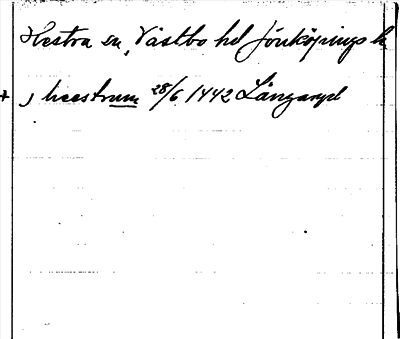 Hestra sn, Västbo hd Jönköpings l
+ j heestrum 28/6 1442 Långaryd